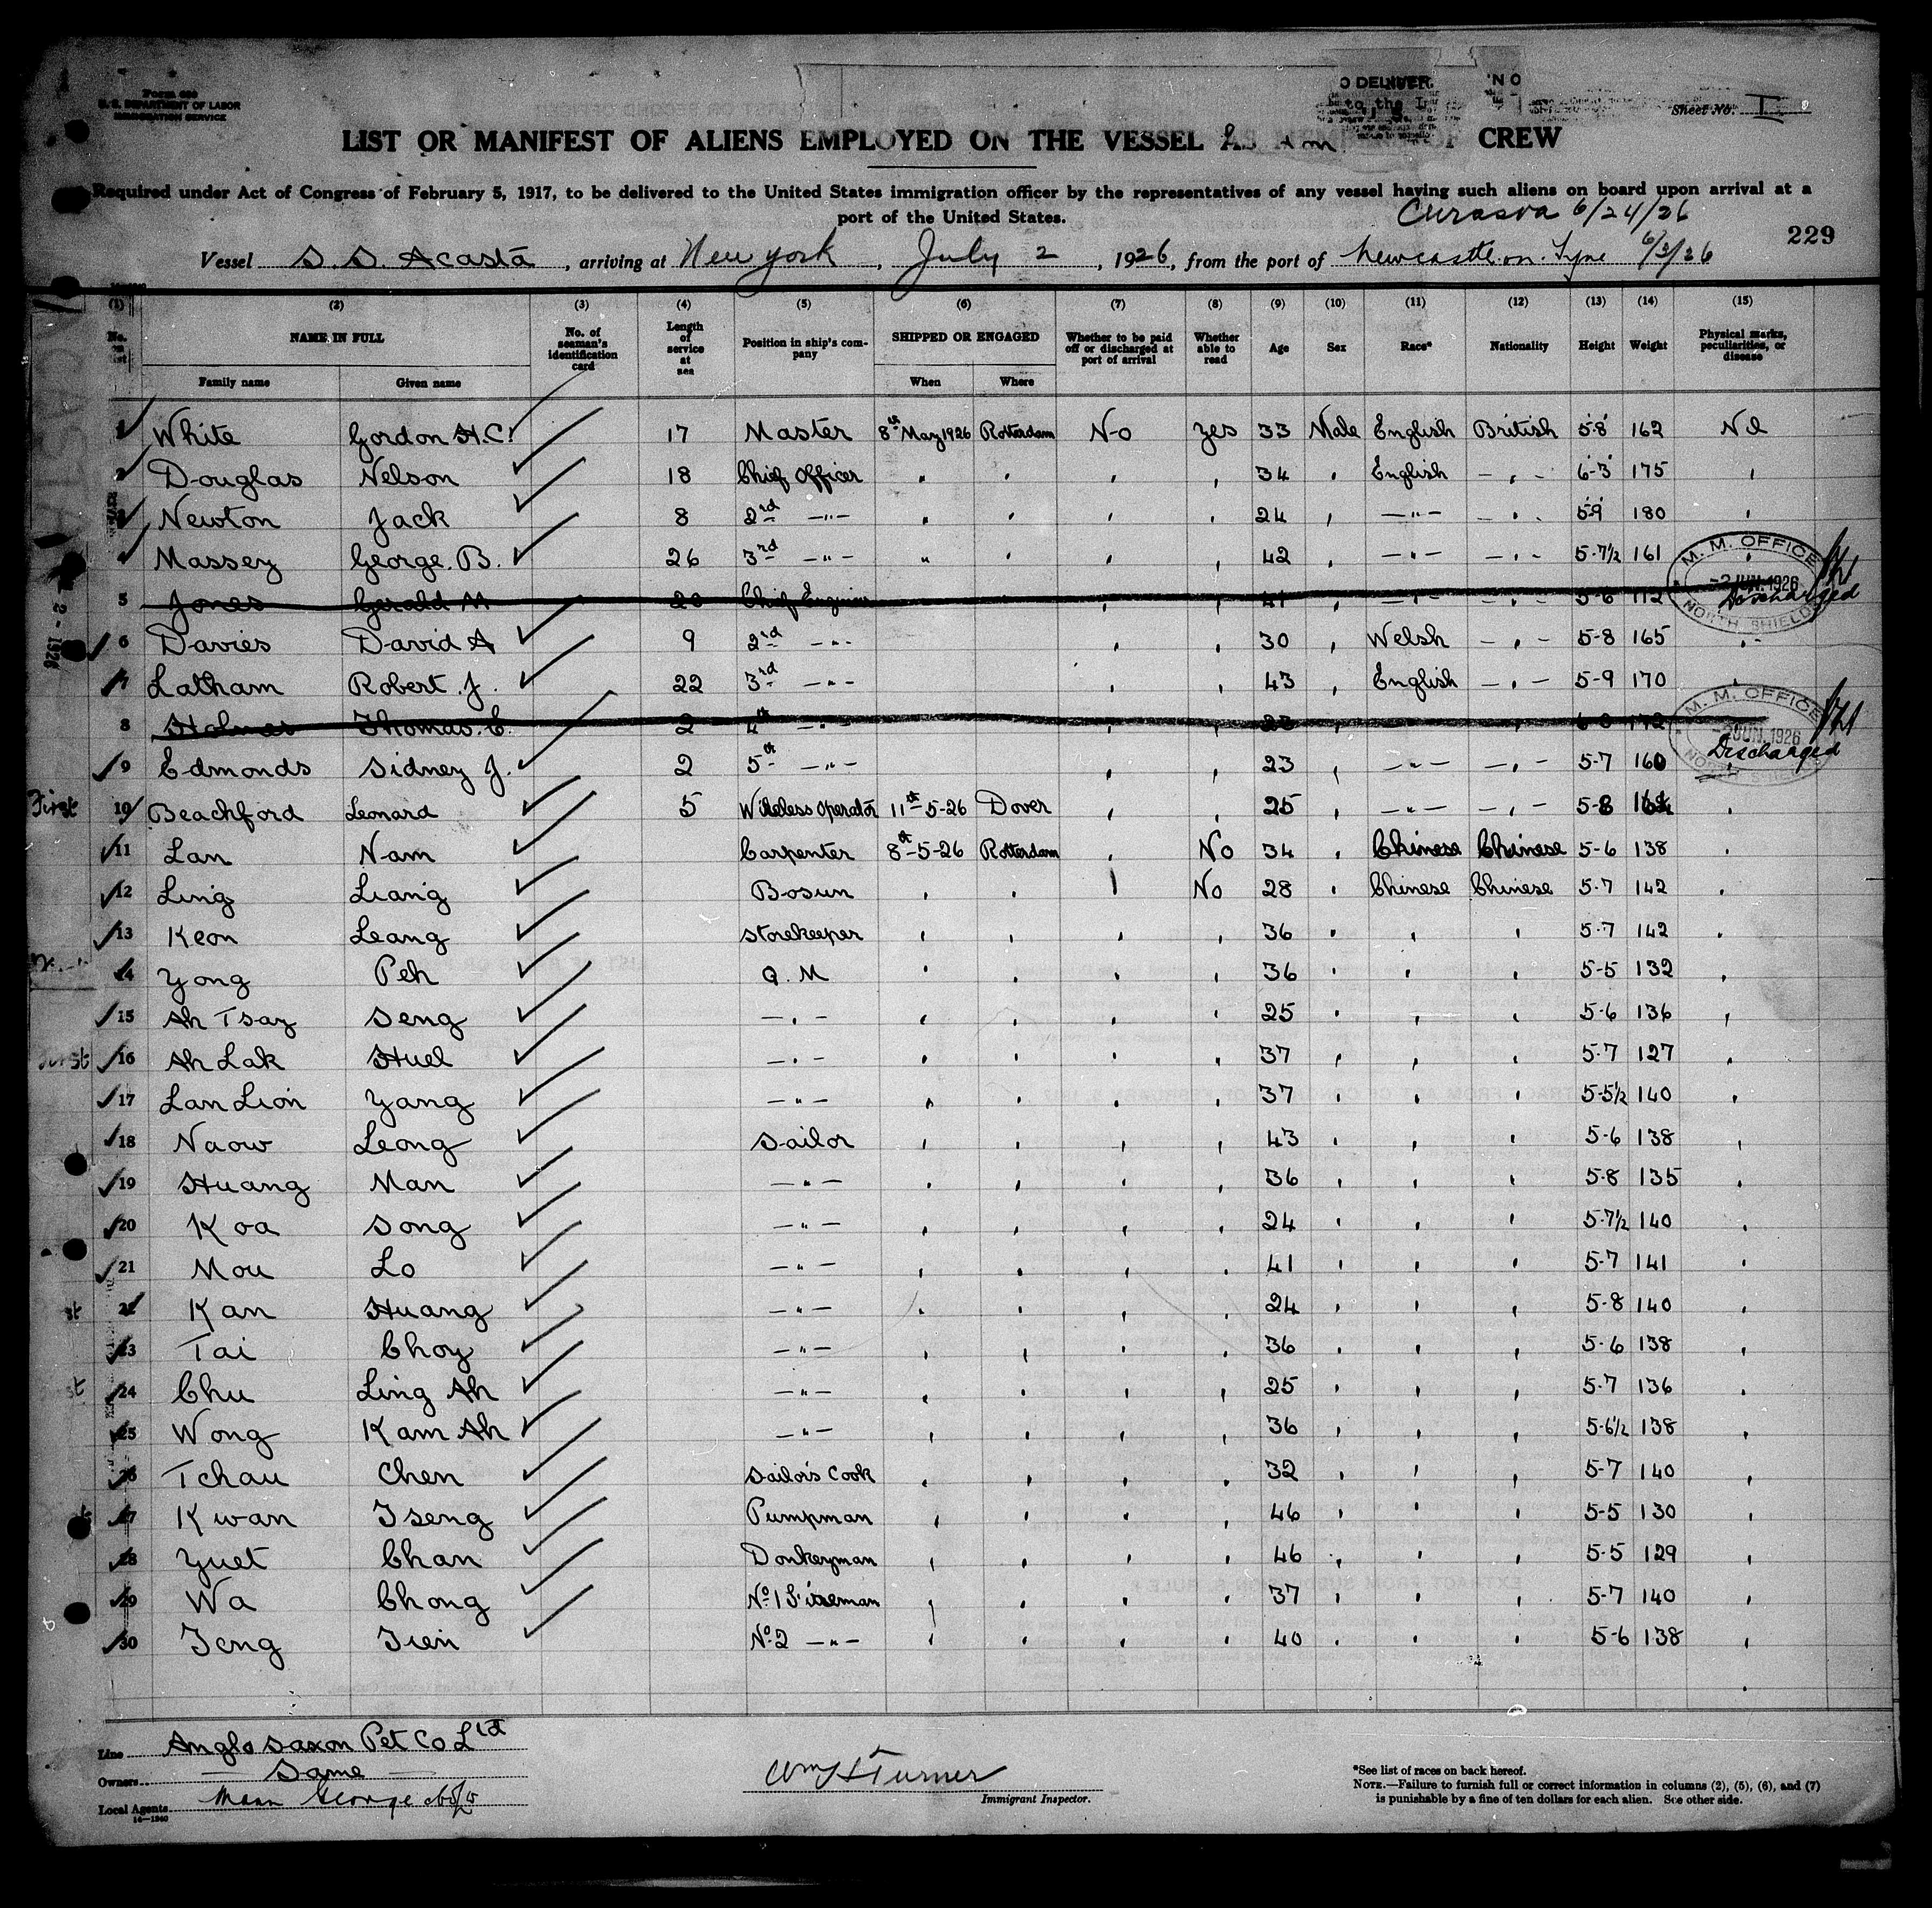 Form 680
U. S. DEPARTMENT OF LABOR
IMMIGRATION SERVICE
Sheet No. I
LIST OR MANIFEST OF ALIENS EMPLOYED ON THE VESSEL AS CREW
Required under Act of Congress of February 5, 1917, to be delivered to the United States immigration officer by the representatives of any vessel having such aliens on board upon arrival at a
port of the United States.
Curasoa 6/24/26
229
Vessel S. S. Acasta, arriving at New York, July 2, 1926, from the port of Newcastle on Tyne 6/2/26
(1) (2) (3) (4) (5) (6) (7) (8) (9) (10) (11) (12) (13) (14) (15)
No. on list NAME IN FULL No. of seaman's identification card Length of service at sea Position in ship's company SHIPPED OR ENGAGED Whether to be paid off or discharged at port of arrival Whether able to read Age Sex Race* Nationality Height Weight Physical marks, peculiarities, or disease
Family name Given name When Where
1 White Gordon H.C. 17 Master 8th May 1926 Rotterdam No Yes 33 Male English British 5-8 162 Nil
2 Douglas Nelson 18 Chief Officer " " " " 34 " English - " - 6-3 175 "
3 Newton Jack 8 2nd -"- " " " " 24 " -"- - " - 5-9 180 "
4 Massey George. B. 26 3rd -"- " " " " 42 " -"- - " - 5-7½ 161 "
M. M. OFFICE -2 JUN.1926 NORTH SHIELDS
5 Jones Gerald M 20 Chief Engineer " " 41 " -"- - " - 5-6 112 Discharged
6 Davies David A 9 2nd -"- " " 30 " Welsh - " - 5-8 165 "
7 Latham Robert. J. 22 3rd -"- " " 43 " English - " - 5-9 170 "
M. M. OFFICE -2 JUN.1926 NORTH SHIELDS
8 Holmes Thomas. E. 2 4th -"- " " 6-0 172 Discharged
9 Edmonds Sidney J. 2 5th -"- " " 23 " -"- - " - 5-7 160 "
First 10 Beachford Leonard 5 Wireless Operator 11th-5-26 Dover " " 25 " -"- - " - 5-8 "
11 Lan Nam Carpenter 8th-5-26 Rotterdam " No 34 " Chinese Chinese 5-6 138 "
12 Ling Liang Bosun " " " No 28 " Chinese Chinese 5-7 142 "
13 Keon Leang Storekeeper " " " " 36 " " " 5-7 142 "
14 Yong Peh Q. M " " " " 36 " " " 5-5 132 "
15 Ah Tsay Seng -"- " " " " 25 " " " 5-6 136 "
First 16 Ah Lak Huel -"- " " " " 37 " " " 5-7 127 "
17 Lan Lion Yang -"- " " " " 37 " " " 5-5½ 140 "
18 Naow Leong Sailor " " " " 43 " " " 5-6 138 "
19 Huang Man -"- " " " " 36 " " " 5-8 135 "
20 Koa Song -"- " " " " 24 " " " 5-7½ 140 "
21 Mou Lo -"- " " " " 41 " " " 5-7 141 "
st 22 Kan Huang -"- " " " " 24 " " " 5-8 140 "
23 Tai Choy -"- " " " " 36 " " " 5-6 138 "
st 24 Chu Ling Ah -"- " " " " 25 " " " 5-7 136 "
25 Wong Kam Ah -"- " " " " 36 " " " 5-6½ 138 "
26 Tchau Chen Sailor's Cook " " " " 32 " " " 5-7 140 "
27 Kwan Tseng Pumpman " " " " 46 " " " 5-5 130 "
28 Yuet Chan Donkeyman " " " " 46 " " " 5-5 129 "
29 Wa Chong No 1 Fireman " " " " 37 " " " 5-7 140 "
30 Teng Tien No 2 -"- " " " " 40 " " " 5-6 138 "
Line Anglo Saxon Pet Co Ltd
Owners Same
Local Agents
Wm H Turner
Immigrant Inspector.
*See list of races on back hereof.
NOTE.—Failure to furnish full or correct information in columns (2), (5), (6), and (7)
is punishable by a fine of ten dollars for each alien. See other side.